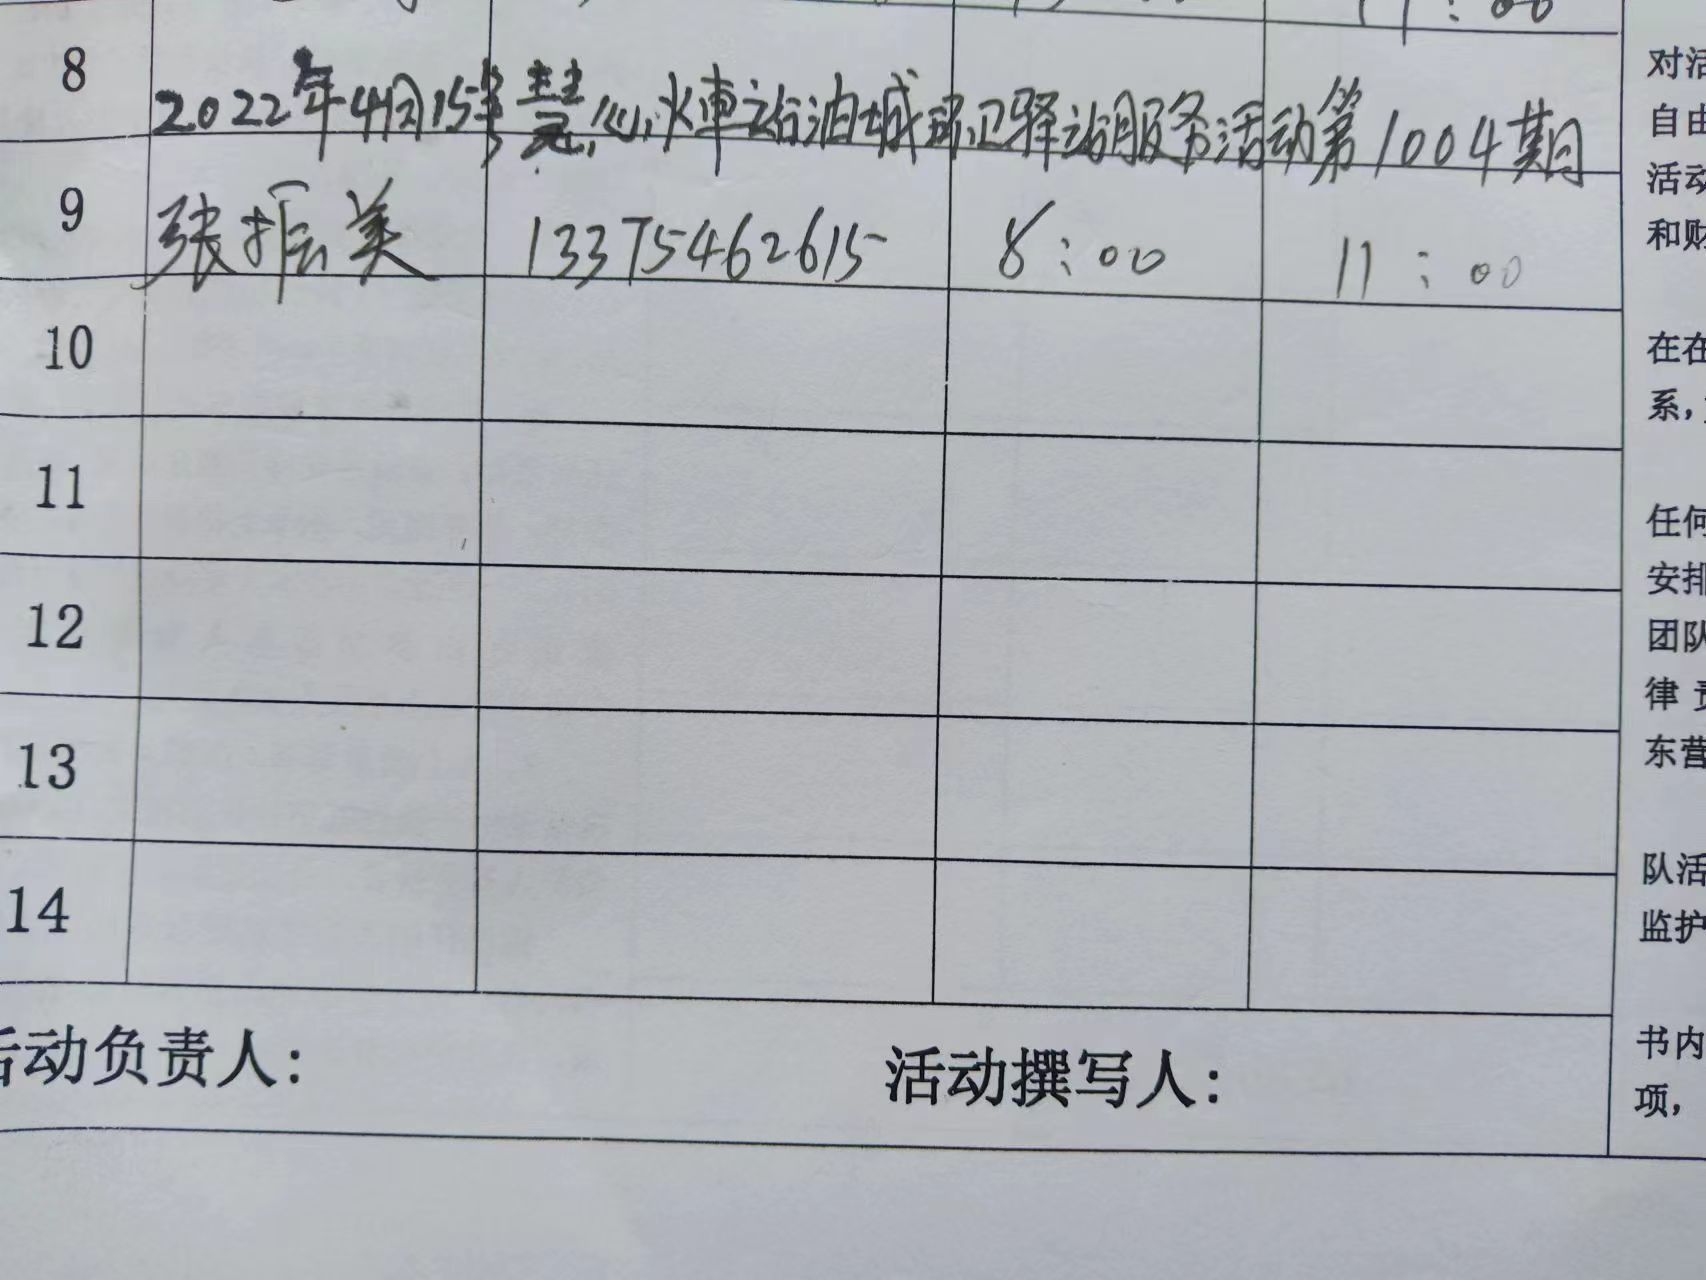 11:00
8
2022年4月15号慧心火車站油城环卫驿站服务活动第1004期
9 张振美 13375462615 8:00 11:00
10
11
12
13
14
活动负责人: 活动撰写人:
对活
自由
活动
和财
在在
系,
任何
安排
团队
律责
东营
队活
监护
书内
项,